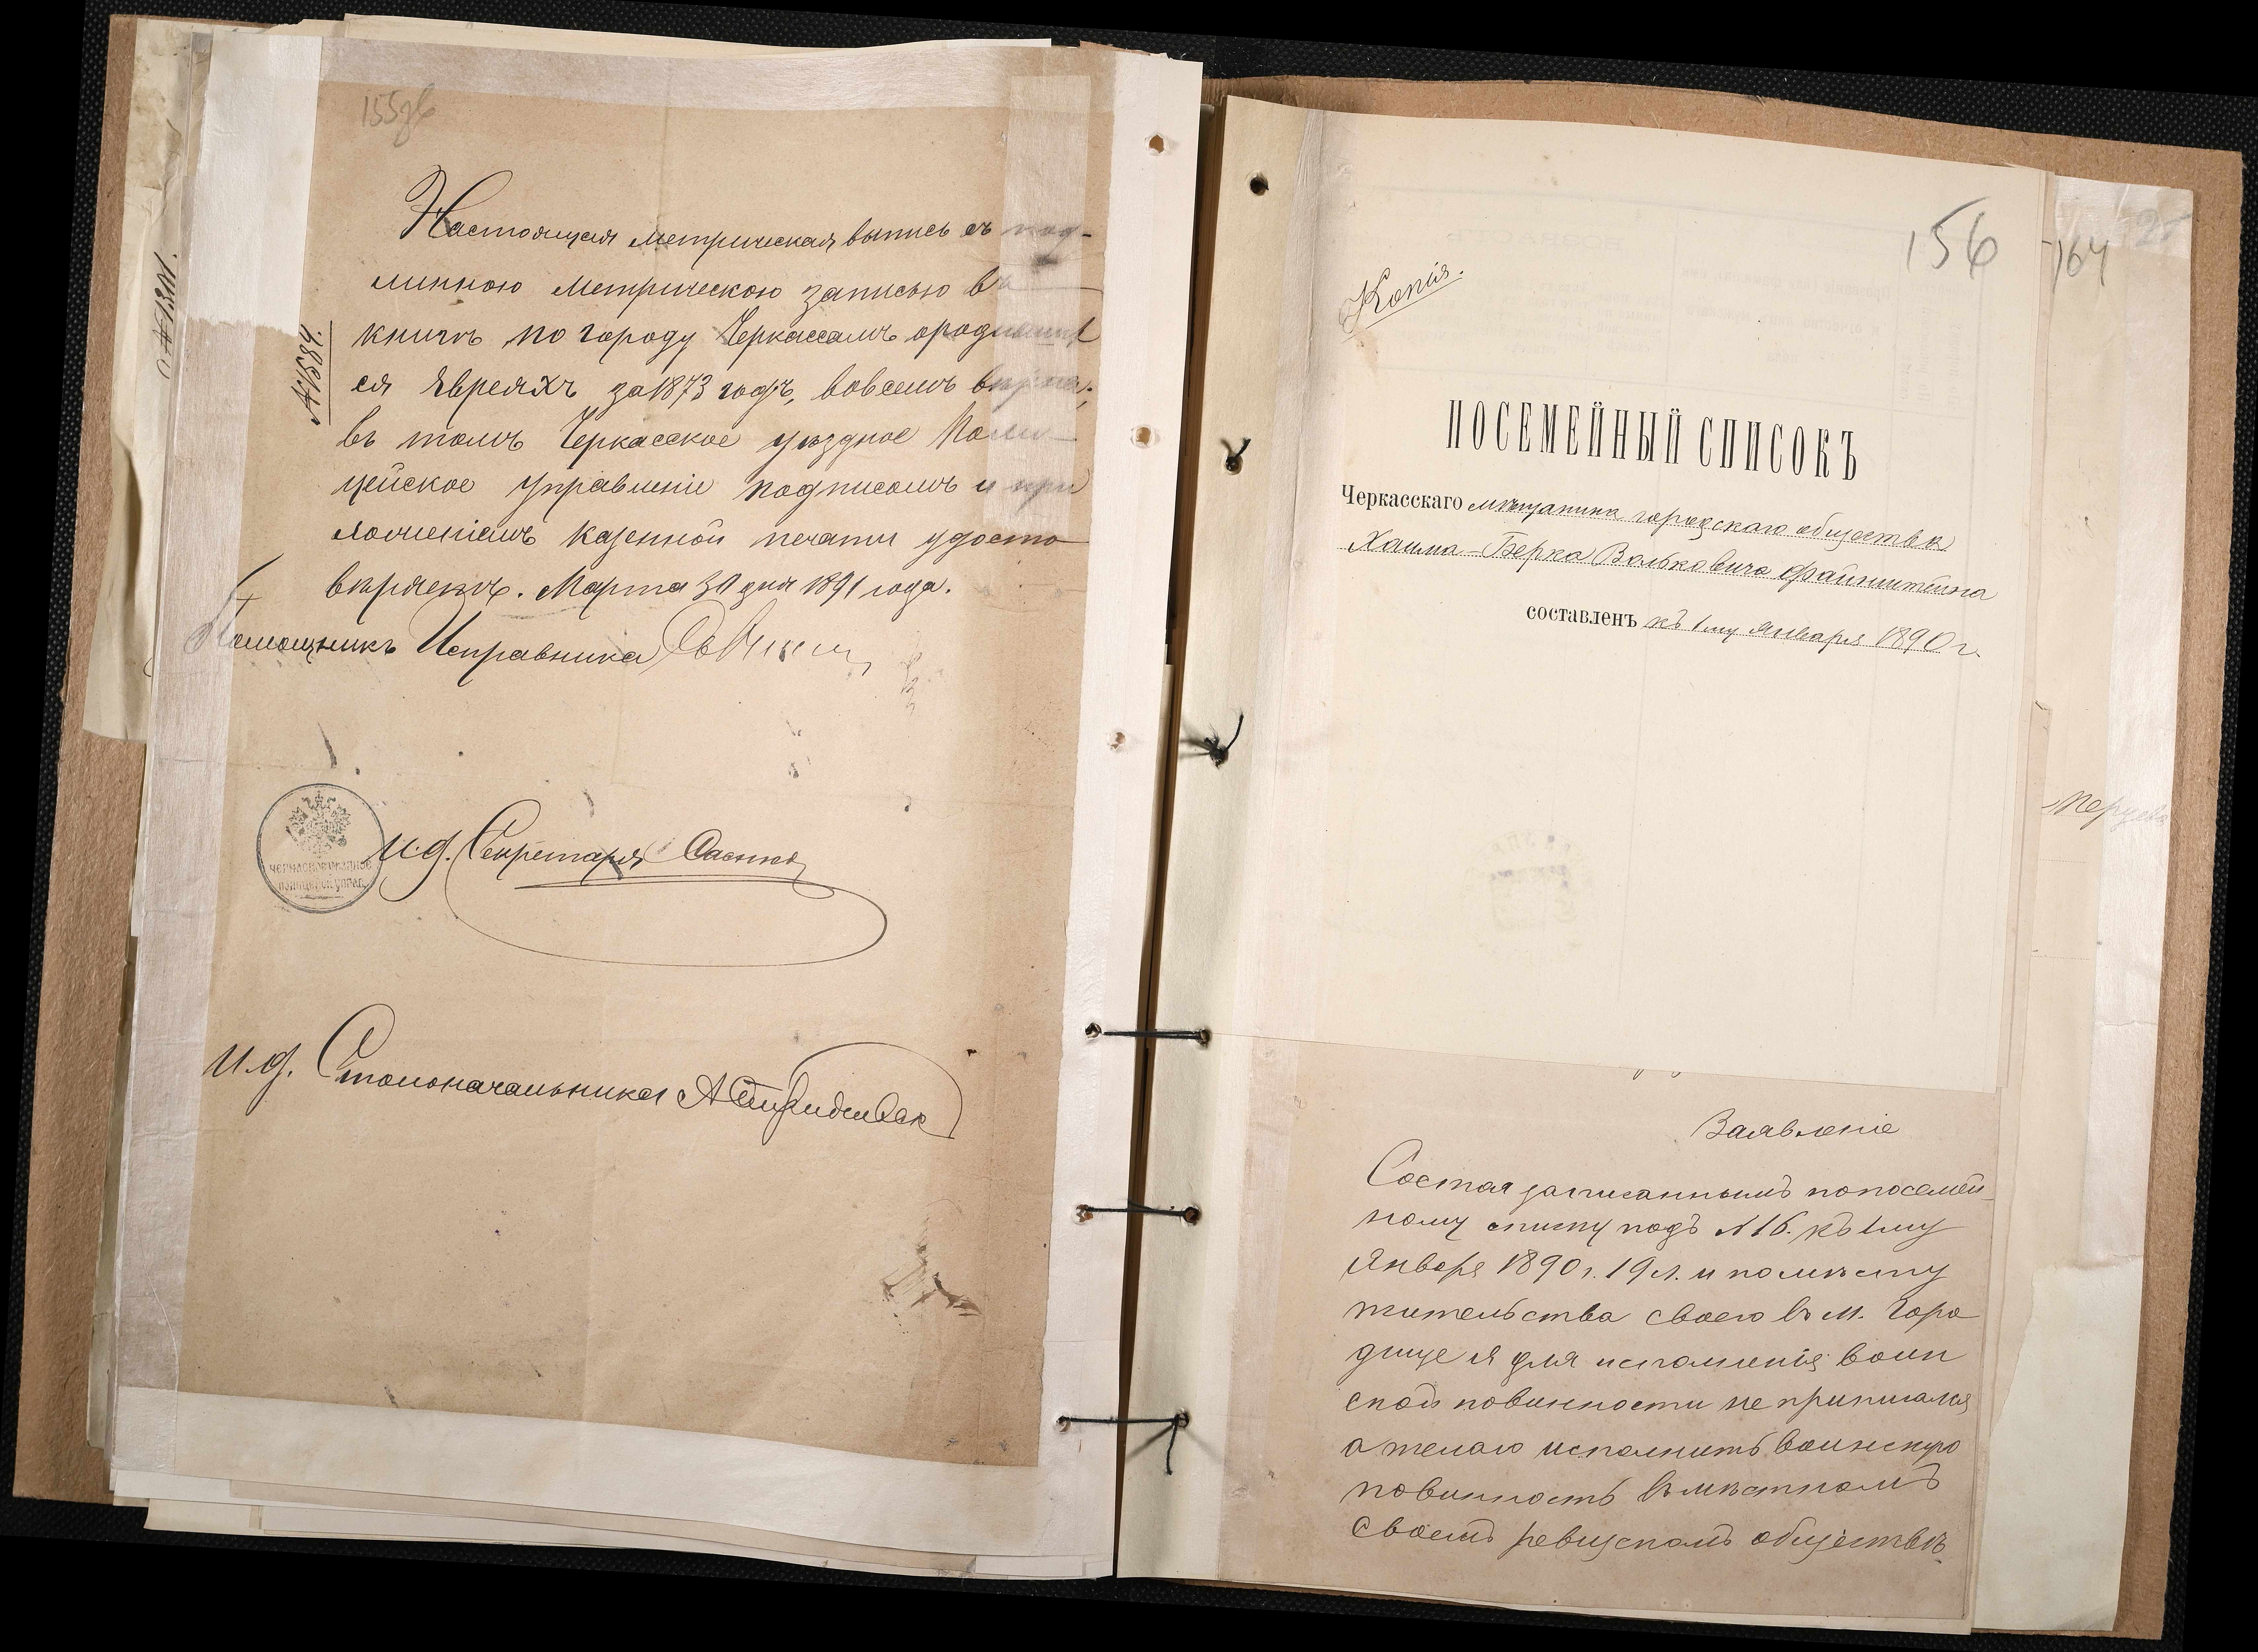 155об
Настоящая метрическая выпись съ под-
линною метрическою записью въ
книгѣ по городу Черкассамъ о родившихъ
ся Евреяхъ за 1873 годъ, во всемъ вѣрна;
въ томъ Черкасское уѣздное Поли-
цейское управленіе подписомъ и при
ложеніемъ казенной печати удосто
вѣряетъ. Марта 30 дня 1891 года.
Помощникъ Исправника
№ 1384.
№ 1301.
ЧЕРКАССКОЕ УѢЗДНОЕ
ПОЛИЦЕЙСК. УПРАВ.
И. д. Секретаря
И. д. Столоначальника
156
164
Копія.
ПОСЕМЕЙНЫЙ СПИСОКЪ
Черкасскаго мѣщанина городскаго общества
Хаима-Берка Вольковича Файнштейна
составленъ къ 1му января 1890 г.
Заявленіе
Состоя записаннымъ по посемей-
ному списку подъ № 16. къ 1му
Января 1890 г. 19 л. и по мѣсту
жительства своего въ м. Горо
дище я для исполненія воин
ской повинности не приписался
а желаю исполнить воинскую
повинность въ мѣстномъ
своемъ ревизскомъ обществѣ